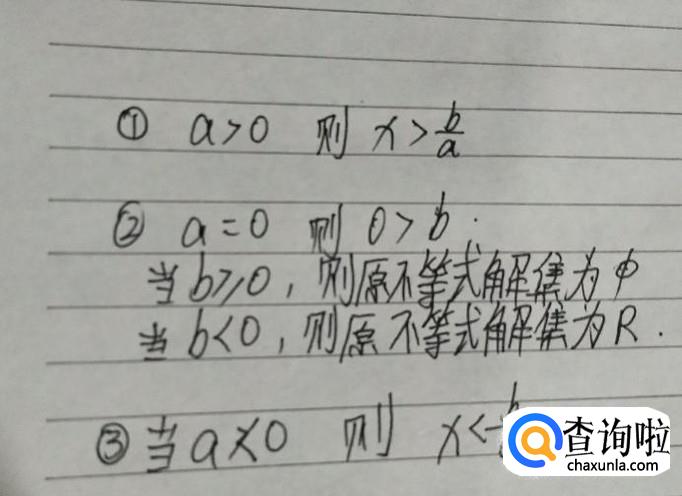 ① a>0 则 x>b/a
② a=0 则 0>b.
当b≥0,则原不等式解集为φ
当b<0,则原不等式解集为R.
③当a<0 则 x<b
查询啦
chaxunla.com